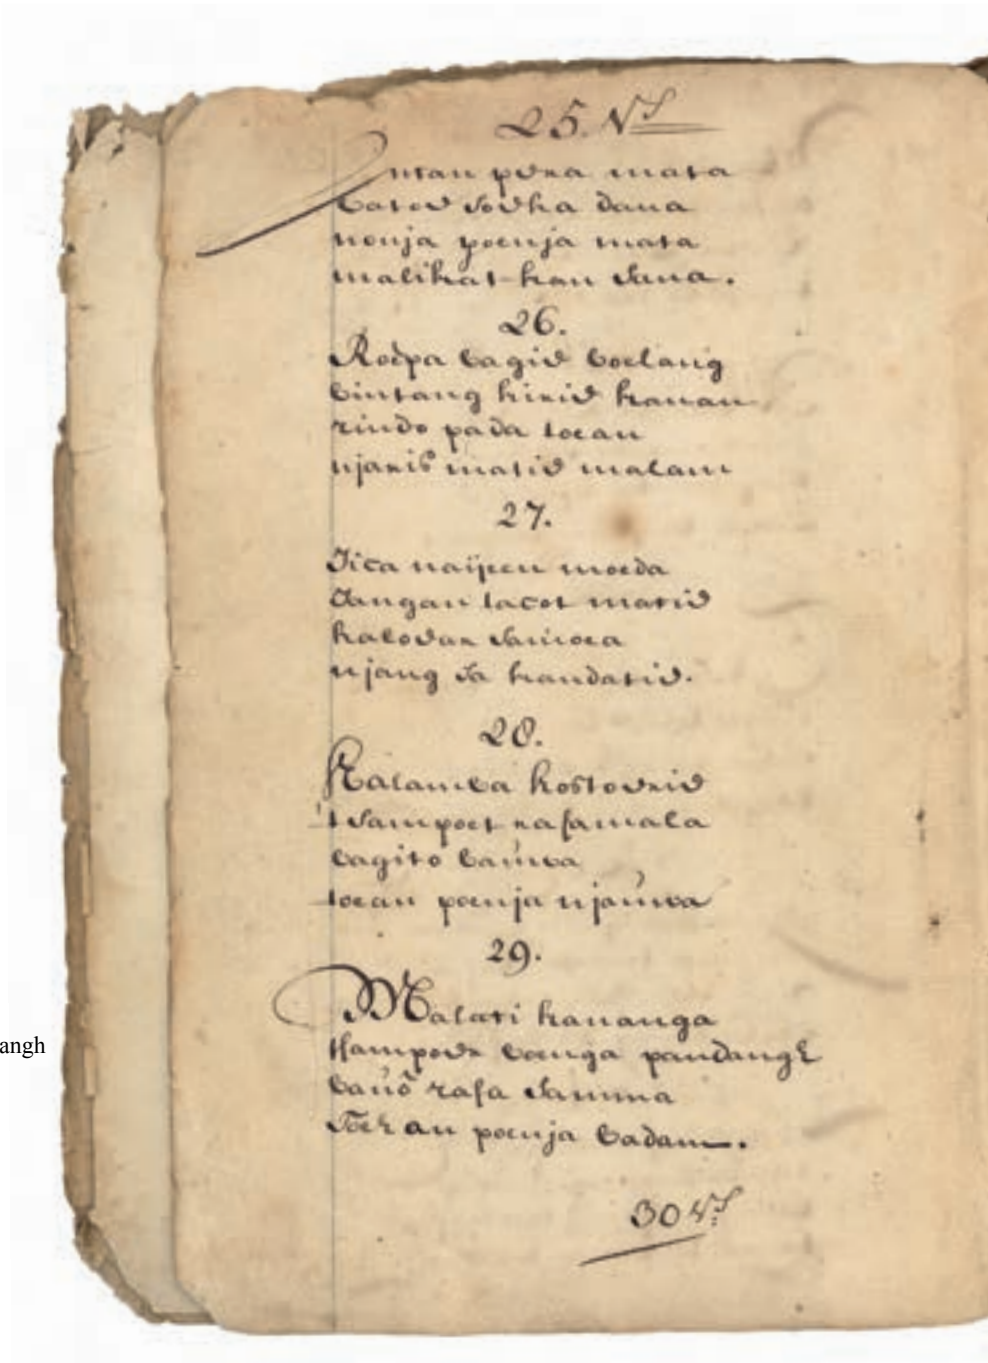 25. Vs
Intan pera mata
batoe soeka dana
nonja poenja mata
malikat kan sana.
26.
Roepa bagie boelang
bintang kirie kanan
rindo pada toean
njaris matie malam
27.
Tica naijeen moeda
Jangan tacot matie
kaloear samoea
njang sa kandatie.
28.
Kalamba kostoerie
tsampoet rasamala
bagito bauwa
toean poenja njauwa
29.
Malati kananga
angh
tsampoer boenga pandangh
bauo rasa samma
Toehan poenja badam.
30 Vs